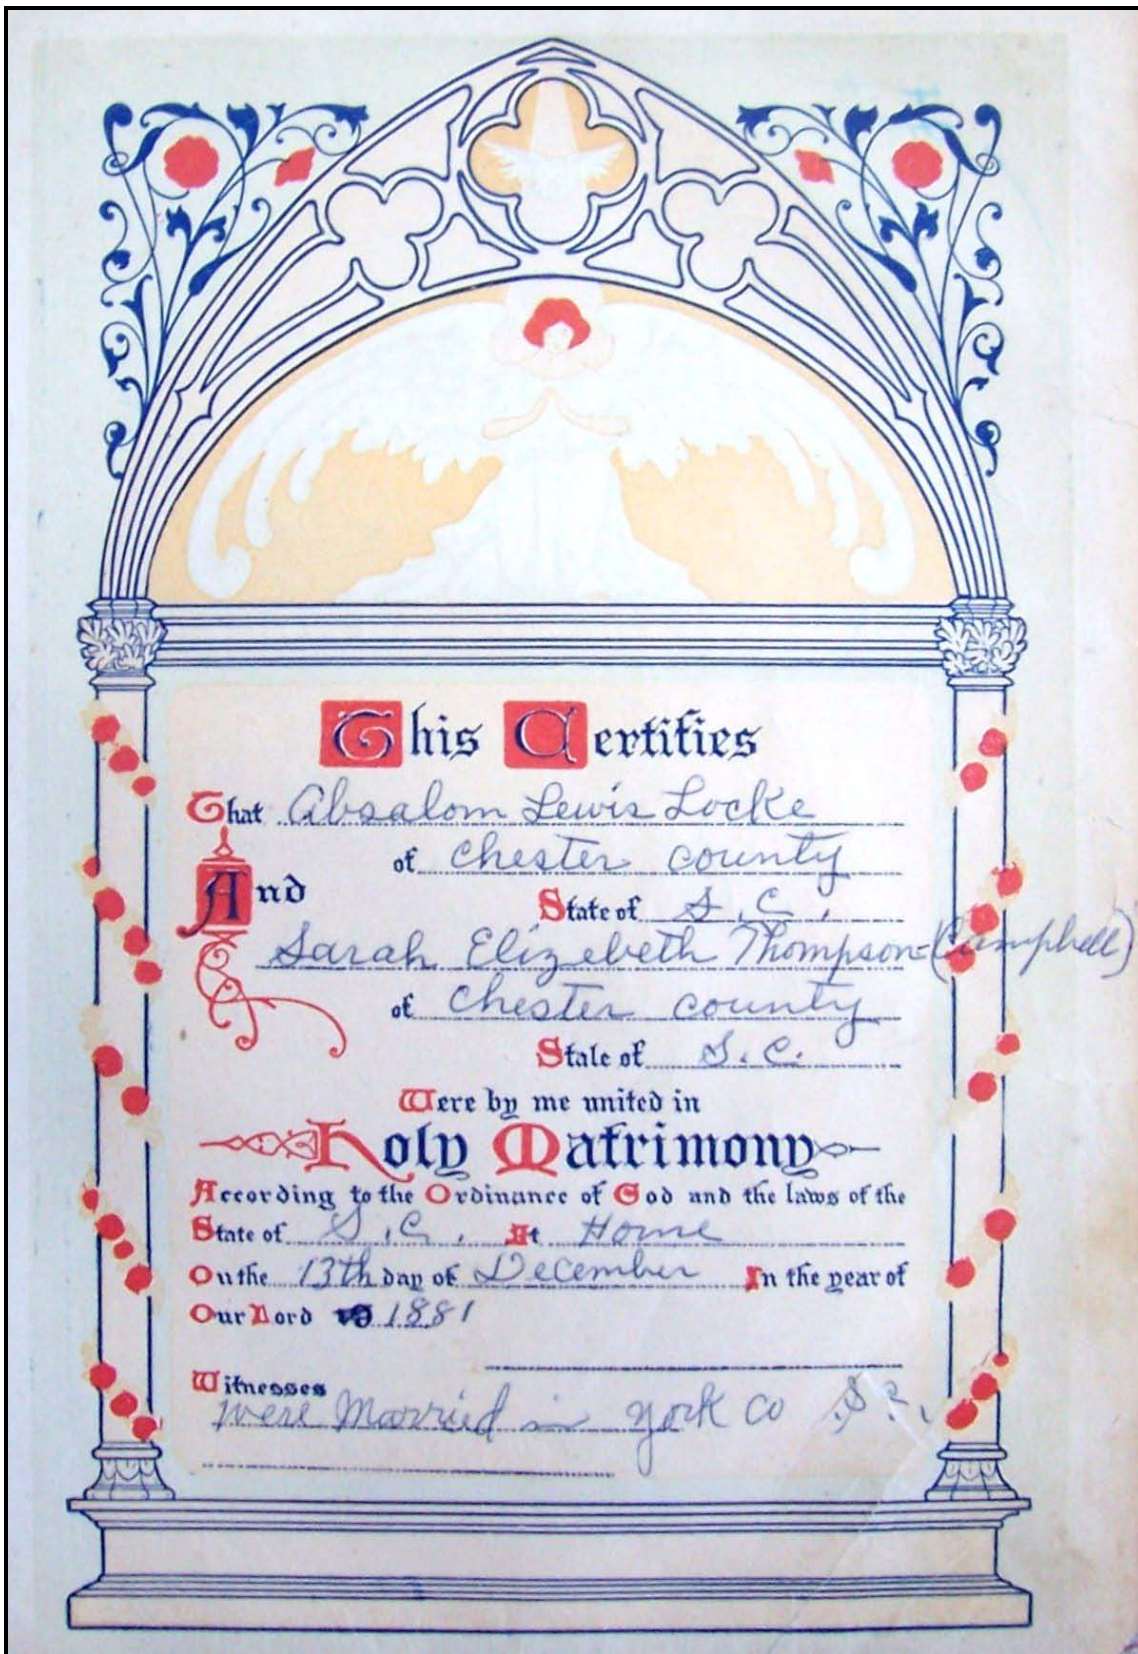 This Certifies
That Absalom Lewis Locke
of Chester County
And
State of S.C.
Sarah Elizebeth Thompson-(Campbell)
of Chester County
State of S.C.
Were by me united in
Holy Matrimony
According to the Ordinance of God and the laws of the
State of S.C. At Home
On the 13th day of December In the year of
Our Lord 19 1881
Witnesses
were Married in York Co S.C.